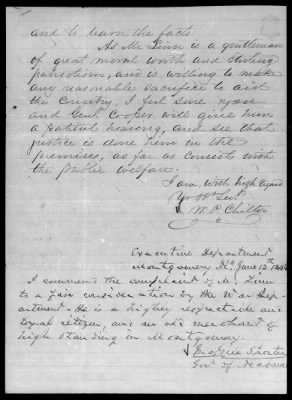 and to learn the facts
As Mr Linn is a gentleman
of great moral worth and sterling
patriotism, and is willing to make
any reasonable sacrifice to aid
the Country, I feel sure you
and Genl Cooper will give him
a patient hearing, and see that
justice is done him in the
premises, as far as consists with
the public welfare.
I am, with high regard
Yr Obt Servt
W. P. Chilton
Executive Department
Montgomery Ala June 12th
I commend the complaint of Mr Linn
to a fair consideration by the War Dep-
artment. He is a highly respectable and
loyal citizen, and an old merchant of
high standing in Montgomery.
Jno Gill Shorter
Gov of Alabama